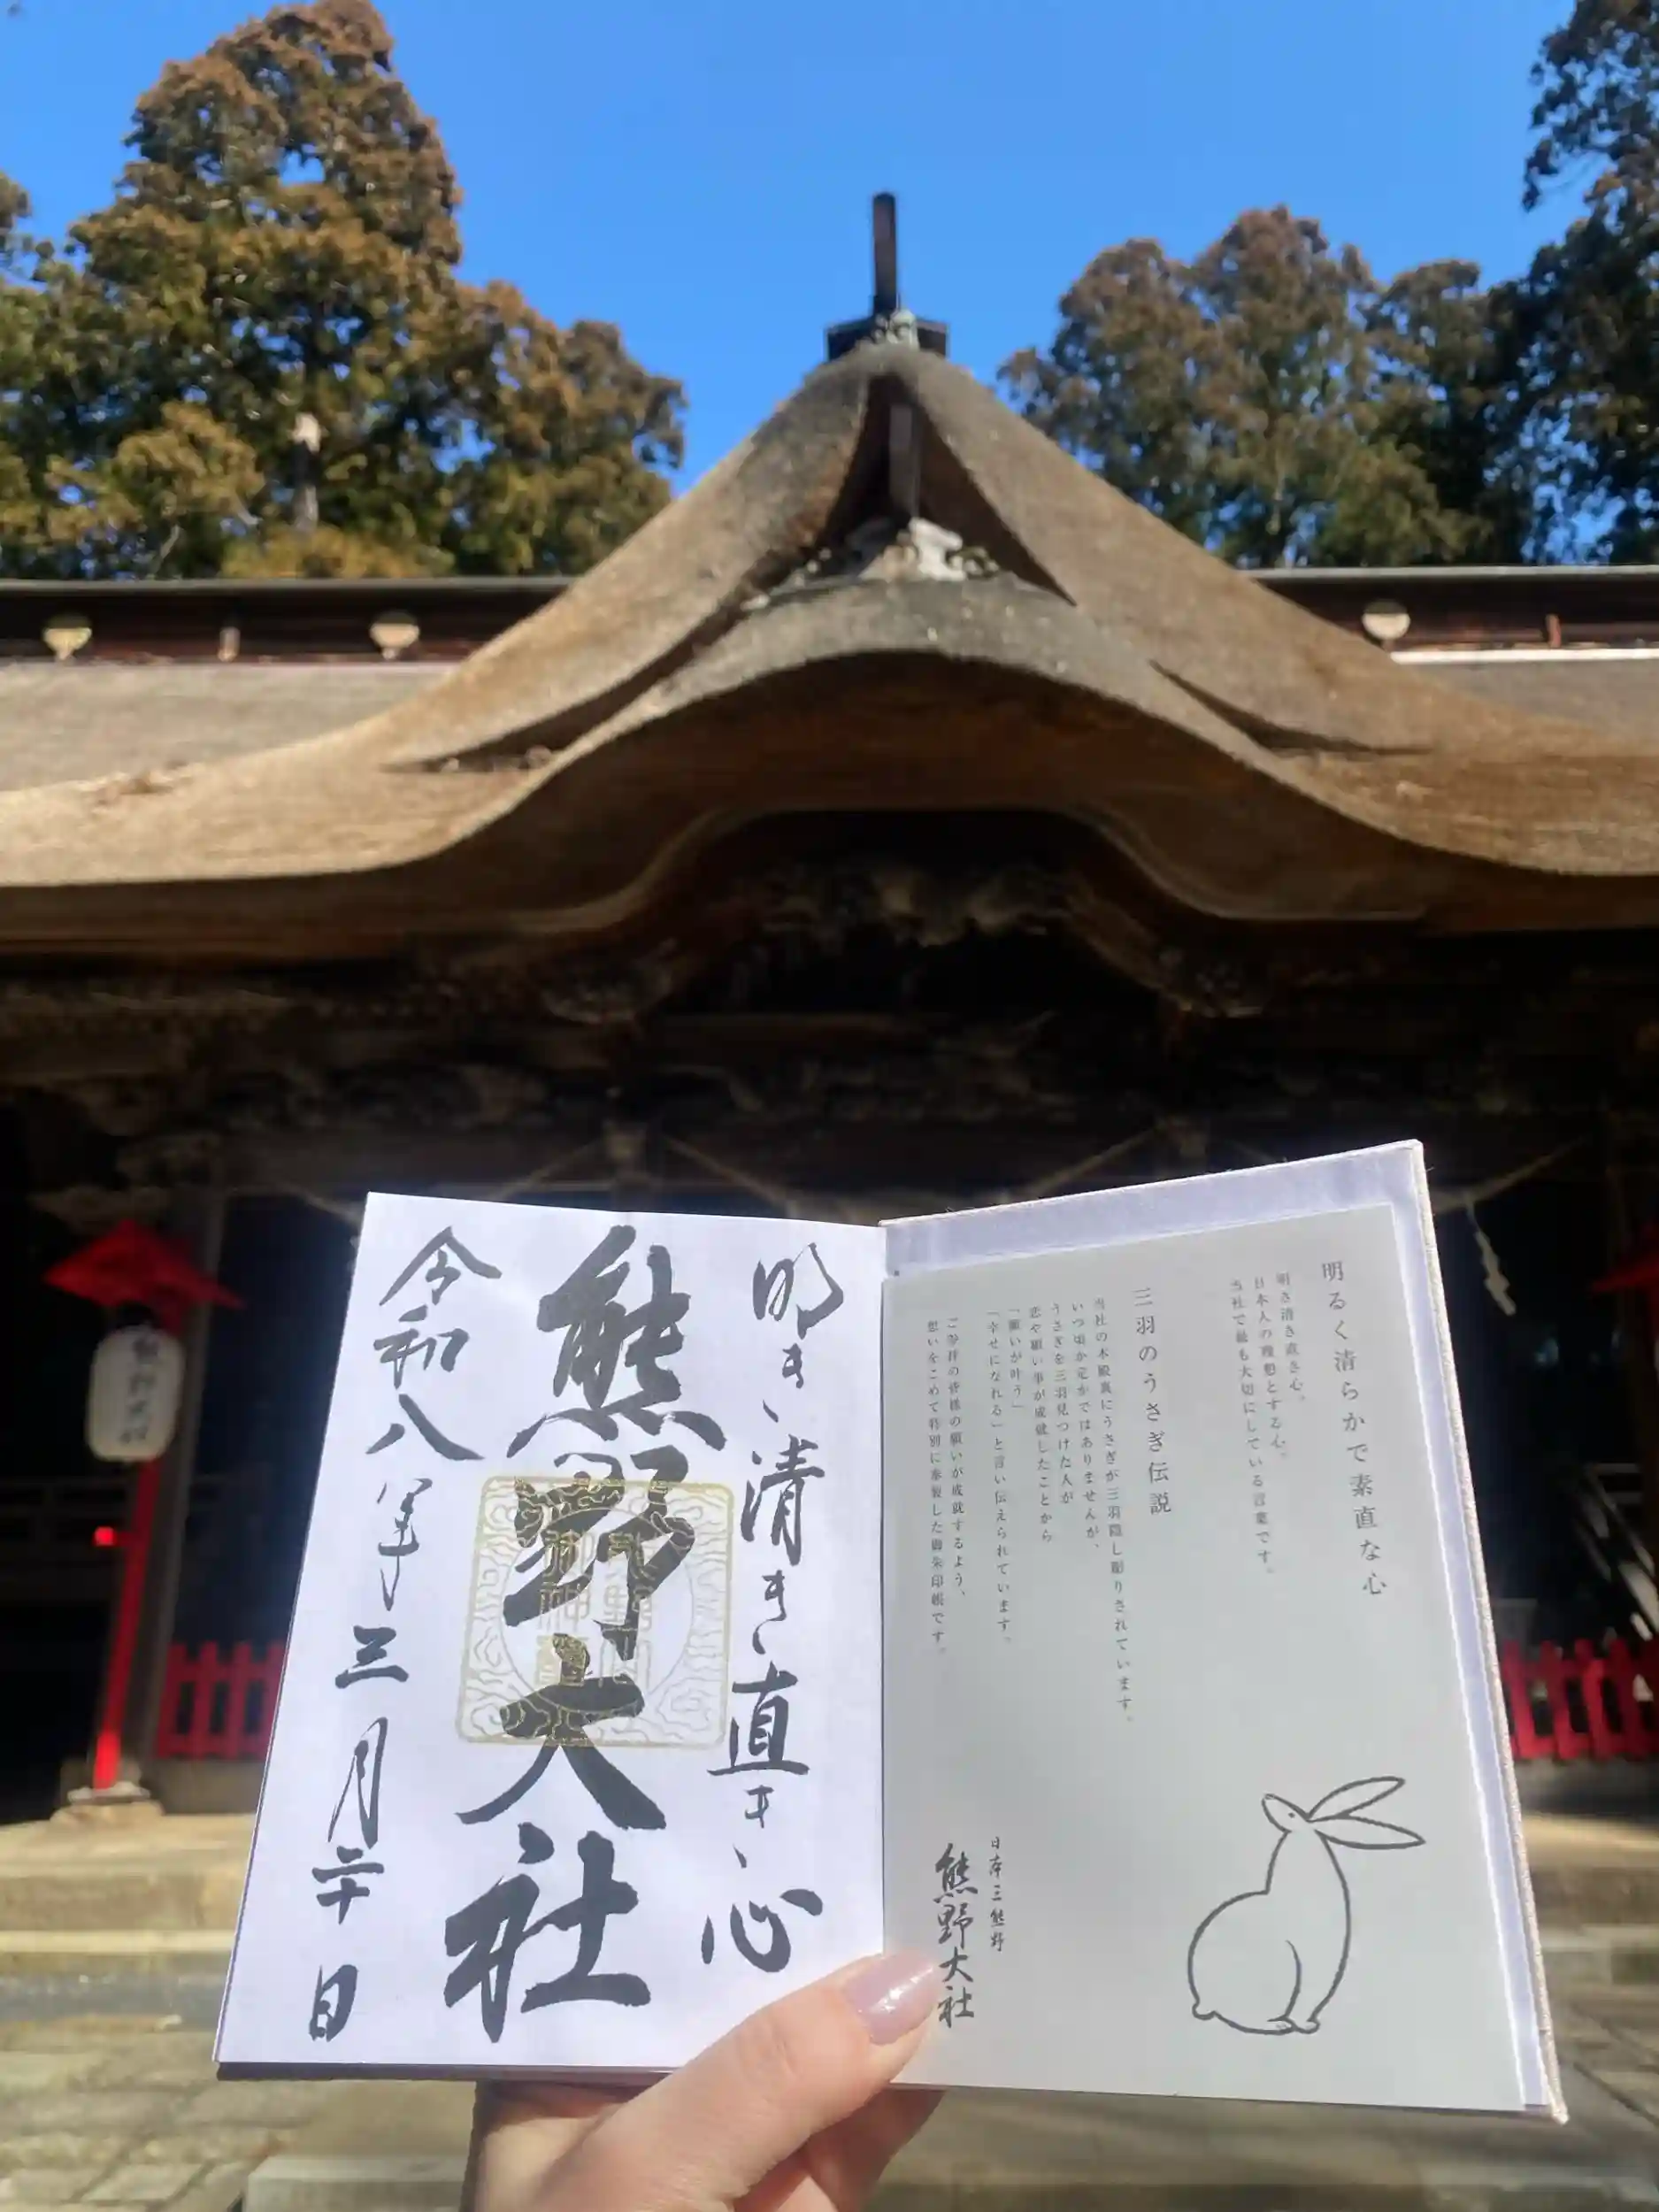 明るく清らかで素直な心
明き清き直き心。
日本人の理想とする心。
当社で最も大切にしている言葉です。
三羽のうさぎ伝説
当社の本殿裏にうさぎが三羽隠し彫りされています。
いつ頃か定かではありませんが、
うさぎを三羽見つけた人が
恋や願い事が成就したことから
「願いが叶う」
「幸せになれる」と言い伝えられています。
ご参拝の皆様の願いが成就するよう、
想いをこめて特別に奉製した御朱印帳です。
日本三熊野
熊野大社
明き、清き、直き、心
熊野大社
令和八年三月二十日